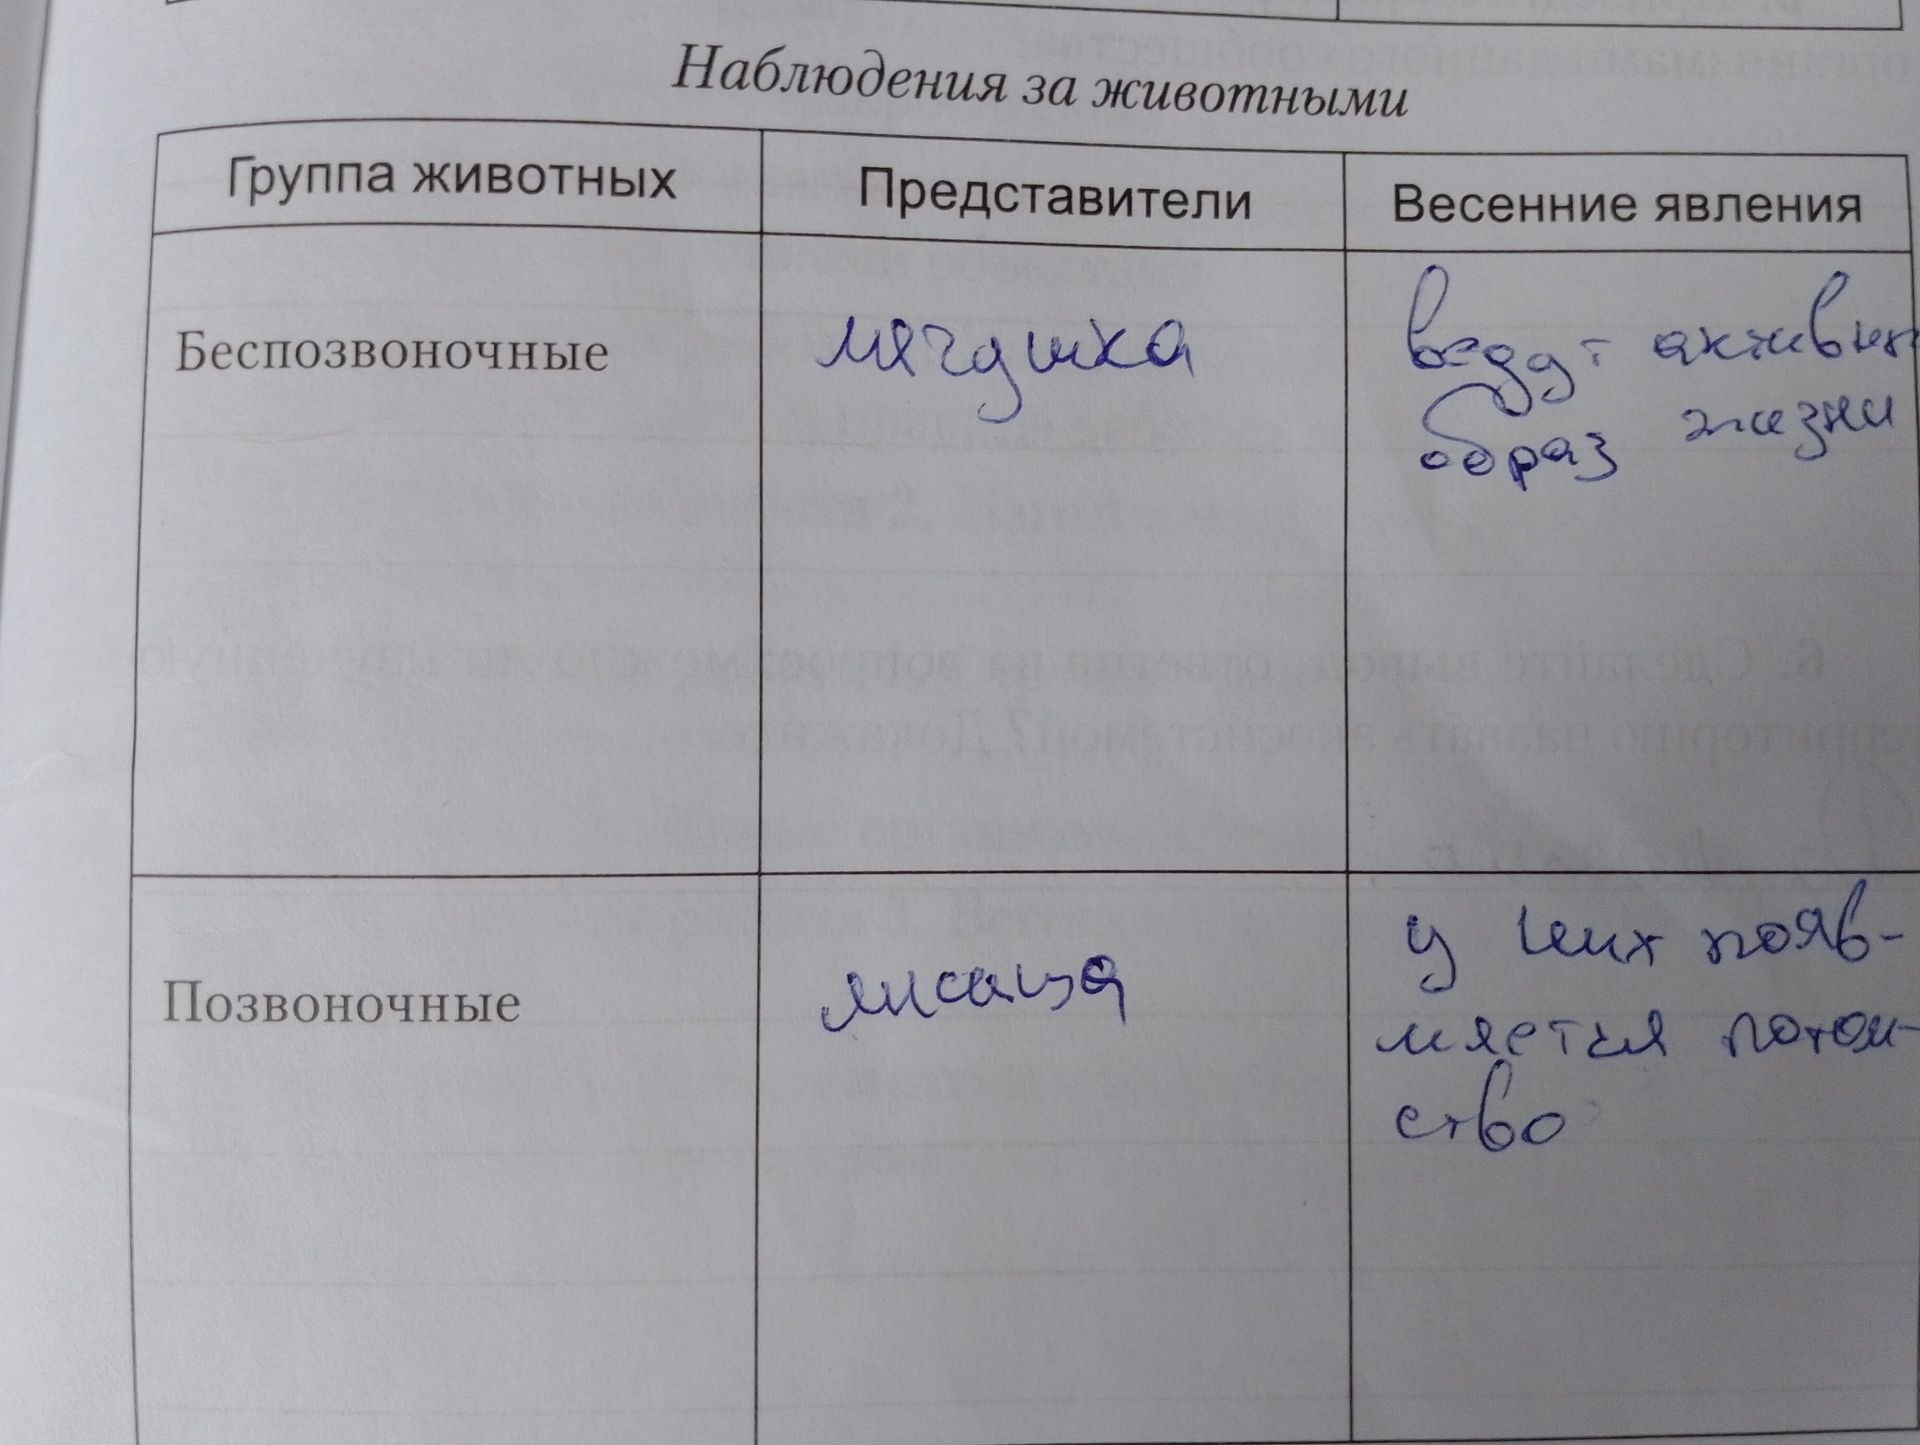 Наблюдения за животными
Группа животных Представители Весенние явления
Беспозвоночные лягушка ведут активн
образ жизни
Позвоночные лисица у них появ-
ляется потом-
ство